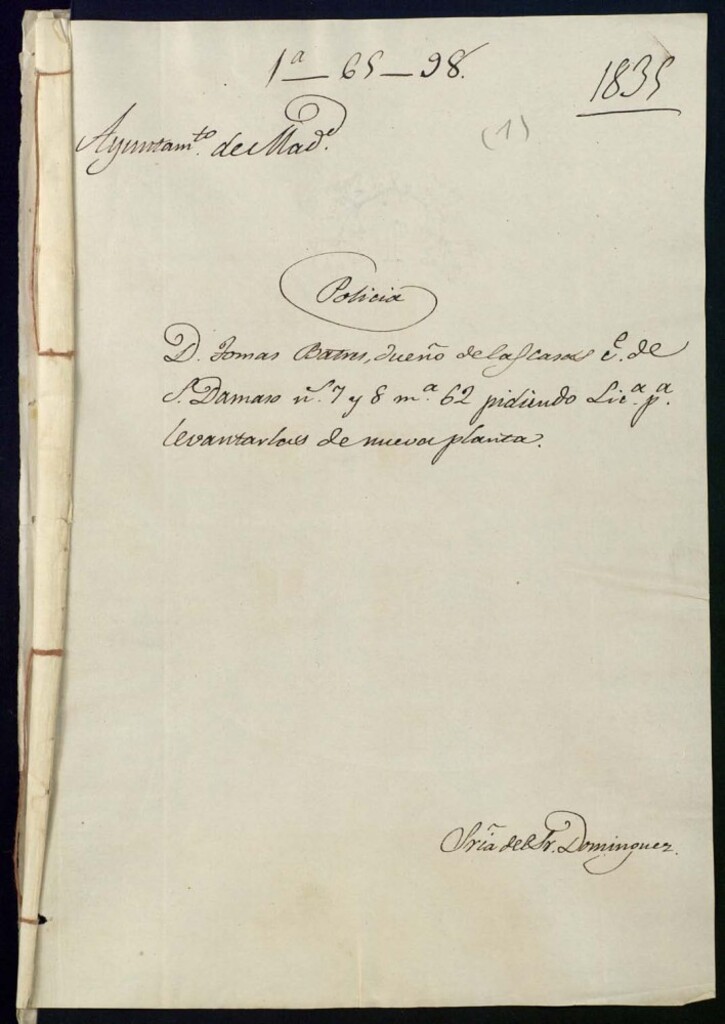 1ª—65—98.
1835
Ayuntam.to de Mad.d
(1)
Policia
D. Tomas Batres, dueño de las casas c.e de
S. Damaso n.s 7 y 8 m.a 62 pidiendo Lic.a p.a
levantarlas de nueva planta.
Sría del Sr. Dominguez.